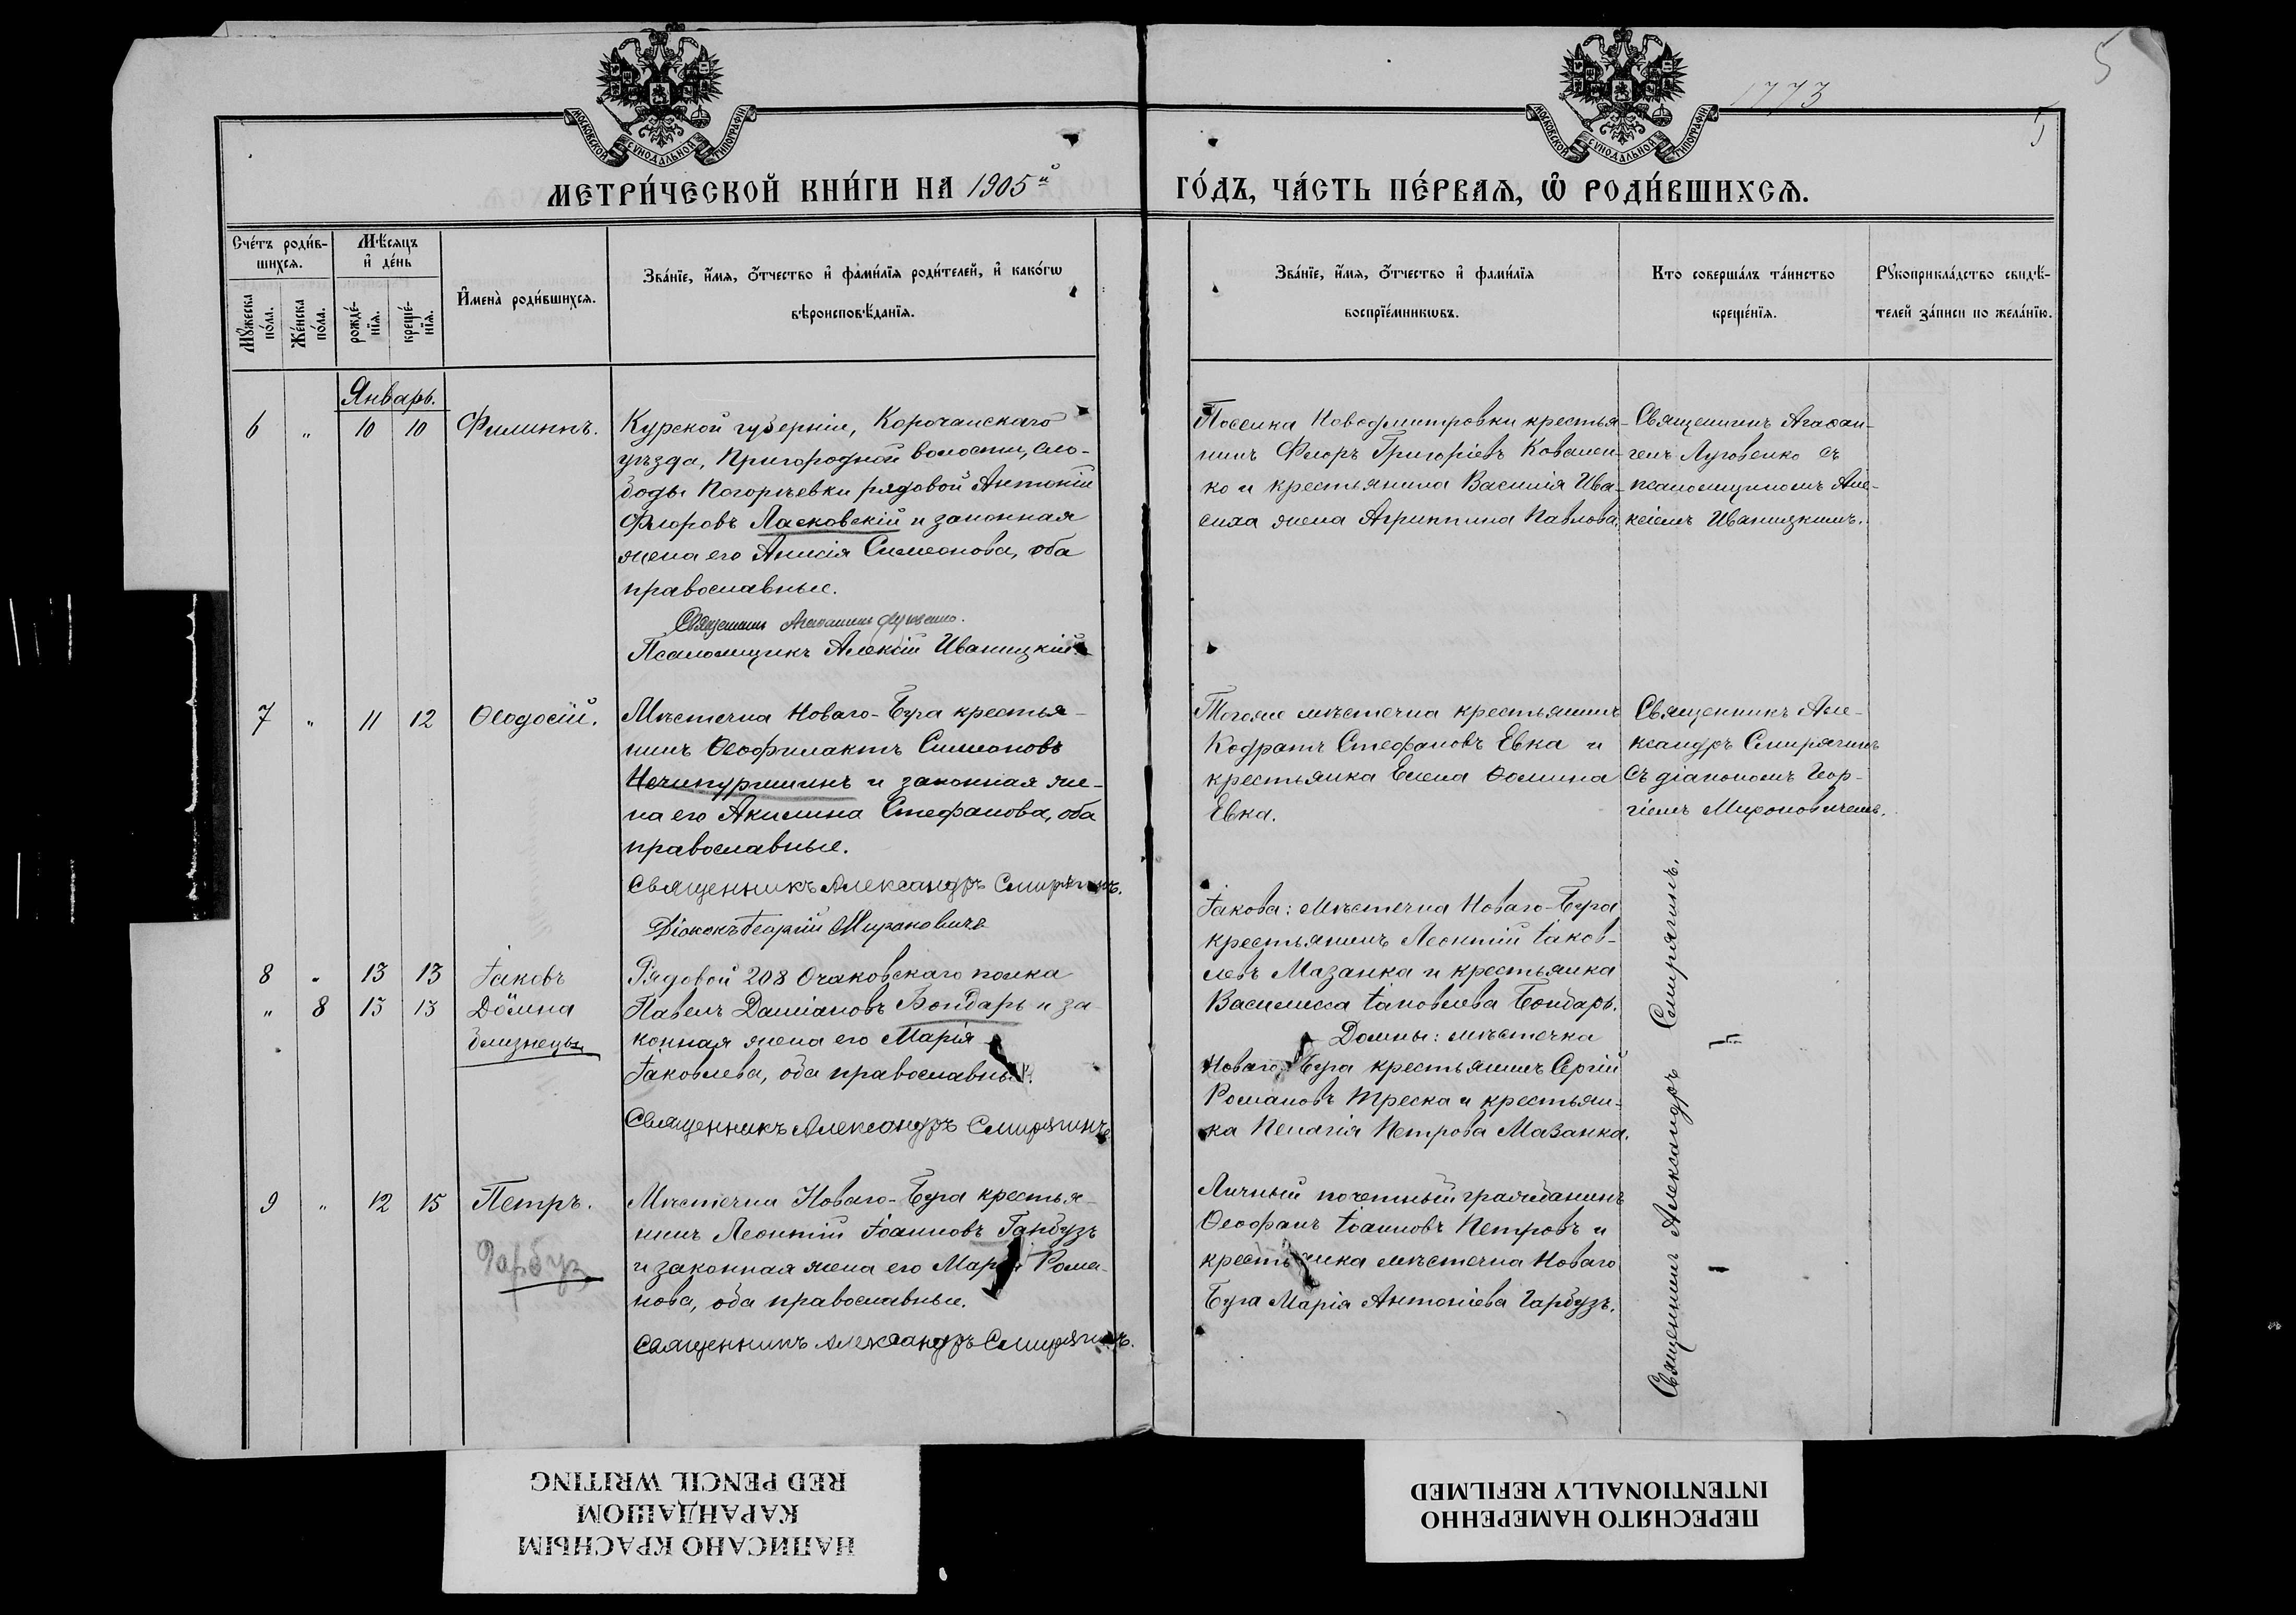 1773
5
5
МОСКОВСКОЙ СУНОДАЛЬНОЙ ТИПОГРАФІИ
МОСКОВСКОЙ СУНОДАЛЬНОЙ ТИПОГРАФІИ
МЕТРИ́ЧЕСКОЙ КНИ́ГИ НА 1905й
ГО́ДЪ, ЧА́СТЬ ПЕ́РВАѦ, Ѡ҆ РОДИ́ВШИХСѦ.
Сче́тъ роди́в-
шихсѧ.
Мѣ́сяцъ
и҆ де́нь
Мꙋ́жеска
по́ла.
Же́нска
по́ла.
рожде́-
нїѧ.
креще́-
нїѧ.
И҆мена̀ роди́вшихсѧ.
Зва́нїе, и҆́мѧ, ѻ҆́тчество и҆ фами́лїѧ роди́телей, и҆ како́гѡ
вѣроисповѣ́данїѧ.
Зва́нїе, и҆́мѧ, ѻ҆́тчество и҆ фами́лїѧ
воспрїе́мникѡвъ.
Кто соверша́лъ та́инство
креще́нїѧ.
Рꙋкоприкла́дство свидѣ́-
телей за́писи по жела́нїю.
Январь.
6 " 10 10 Филиппъ.
Курской губерніи, Корочанскаго
уѣзда, Пригородной волости, сло-
боды Погорѣевки рядовой Антоній
Флоровъ Ласковскій и законная
жена его Анисія Симеонова, оба
православные.
Священникъ Агафангелъ Луговенко.
Псаломщикъ Алексій Иваницкій
Поселка Новодмитровки крестья-
нинъ Флоръ Григоріевъ Ковален-
ко и крестьянина Василія Ива-
сиха жена Агриппина Павлова.
Священникъ Агафан-
гелъ Луговенко съ
псаломщикомъ Але-
ксіемъ Иваницкимъ.
7 " 11 12 Ѳеодосій.
Мѣстечка Новаго-Буга крестья-
нинъ Ѳеофилактъ Симеоновъ
Нечипуришинъ и законная же-
на его Акилина Стефанова, оба
православные.
Священникъ Александръ Смирягинъ.
Діаконъ Георгій Мироновичъ
Тогоже мѣстечка крестьянинъ
Кодратъ Стефановъ Евка и
крестьянка Елена Ѳомина
Евка.
Священникъ Але-
ксандръ Смирягинъ
съ діакономъ Геор-
гіемъ Мироновичемъ.
8 " 13 13 Іаковъ
" 8 13 13 Домна
близнецы
Рядовой 208 Очаковскаго полка
Павелъ Даміановъ Бондарь и за-
конная жена его Марія
Іаковлева, оба православные.
Священникъ Александръ Смирягинъ
Іакова: мѣстечка Новаго-Буга
крестьянинъ Леонтій Іаков-
левъ Мазанка и крестьянка
Василисса Іаковлева Бондарь.
Домны: мѣстечка
Новаго-Буга крестьянинъ Сергій
Романовъ Треска и крестьян-
ка Пелагія Петрова Мазанка.
Священникъ Александръ Смирягинъ.
9 " 12 15 Петръ.
Гарбуз
Мѣстечка Новаго-Буга крестья-
нинъ Леонтій Іоанновъ Гарбузъ
и законная жена его Марія Рома-
нова, оба православные.
Священникъ Александръ Смирягинъ.
Личный почетный гражданинъ
Ѳеофанъ Іоанновъ Петровъ и
крестьянка мѣстечка Новаго
Буга Марія Антоніева Гарбузъ.
НАПИСАНО КРАСНЫМ
КАРАНДАШОМ
RED PENCIL WRITING
ПЕРЕСНЯТО НАМЕРЕННО
INTENTIONALLY REFILMED